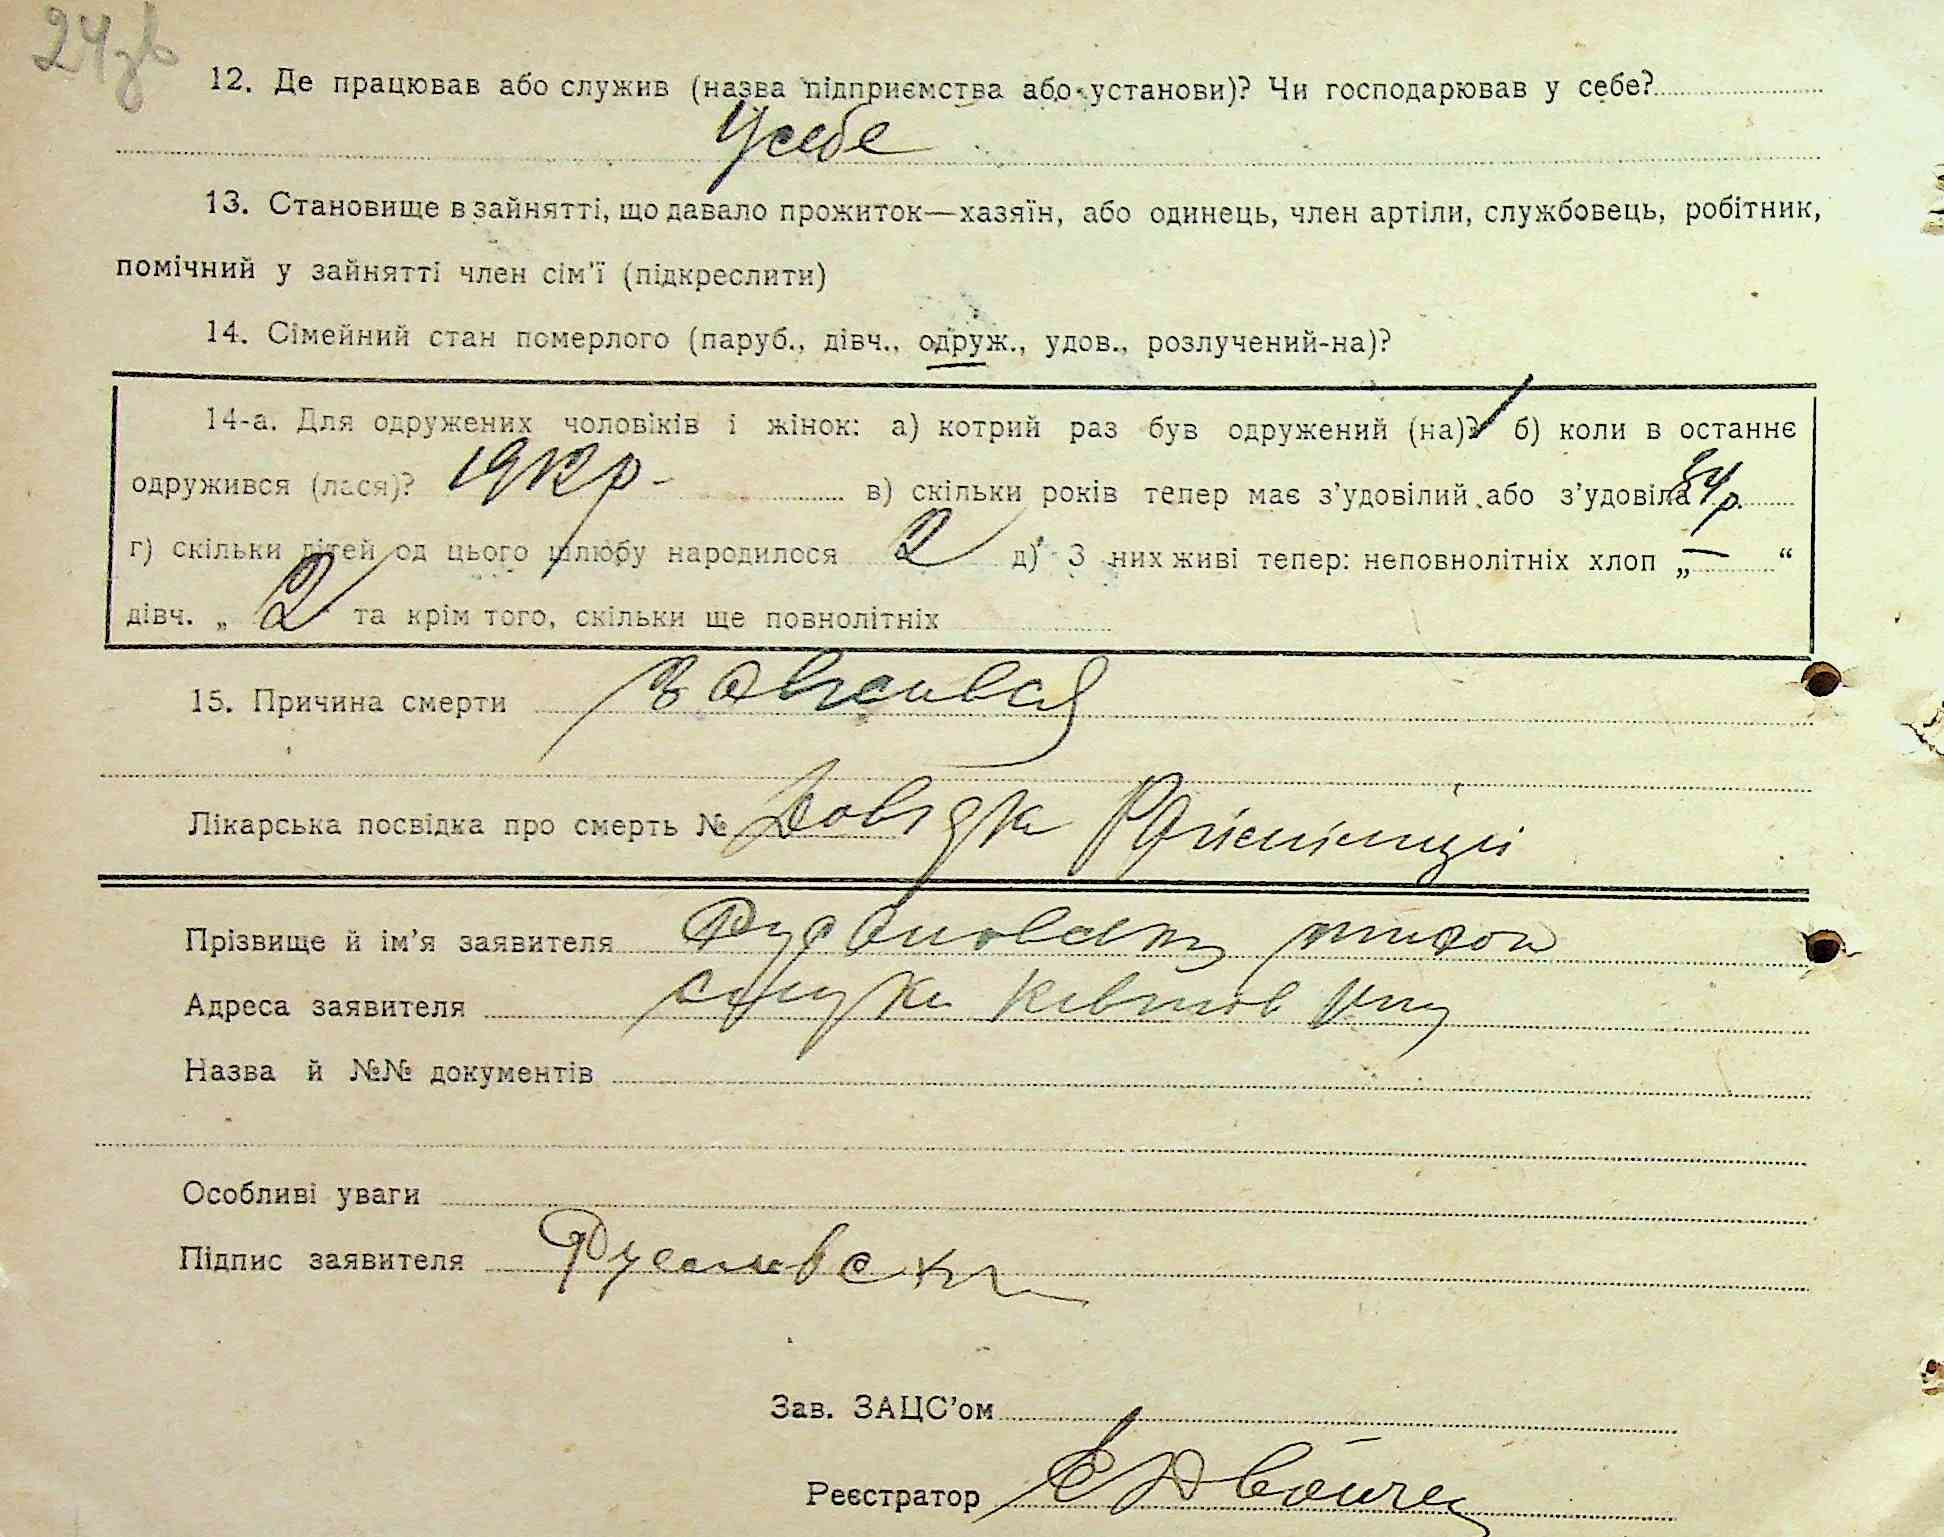 24зв
12. Де працював або служив (назва підприємства або установи)? Чи господарював у себе?
У себе
13. Становище в зайнятті, що давало прожиток—хазяїн, або одинець, член артіли, службовець, робітник,
помічний у зайнятті член сім'ї (підкреслити)
14. Сімейний стан померлого (паруб., дівч., одруж., удов., розлучений-на)?
14-а. Для одружених чоловіків і жінок: а) котрий раз був одружений (на)? 1 б) коли в останнє
одружився (лася)? 1912 р. в) скільки років тепер має з'удовілий або з'удовіла 34 р.
г) скільки дітей од цього шлюбу народилося 2 д) З них живі тепер: неповнолітніх хлоп „ — “
дівч. „ 2 та крім того, скільки ще повнолітніх
15. Причина смерти завісився
Лікарська посвідка про смерть № Довідка
Прізвище й ім'я заявителя
Адреса заявителя
Назва й №№ документів
Особливі уваги
Підпис заявителя
Зав. ЗАЦС'ом
Реєстратор